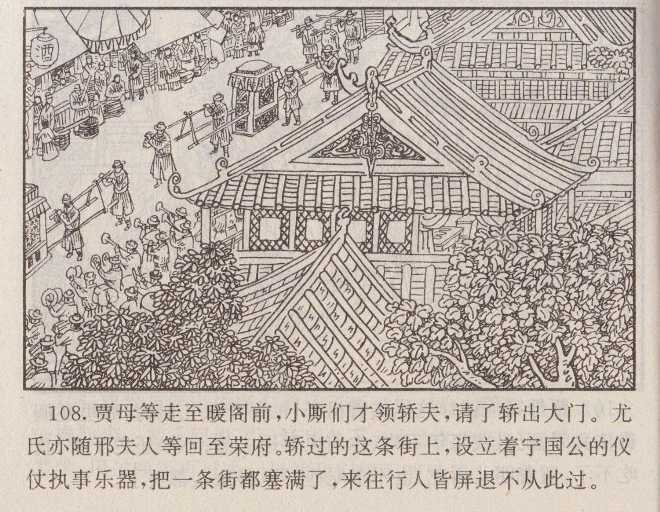 酒
108. 贾母等走至暖阁前,小厮们才领轿夫,请了轿出大门。尤
氏亦随邢夫人等回至荣府。轿过的这条街上,设立着宁国公的仪
仗执事乐器,把一条街都塞满了,来往行人皆屏退不从此过。